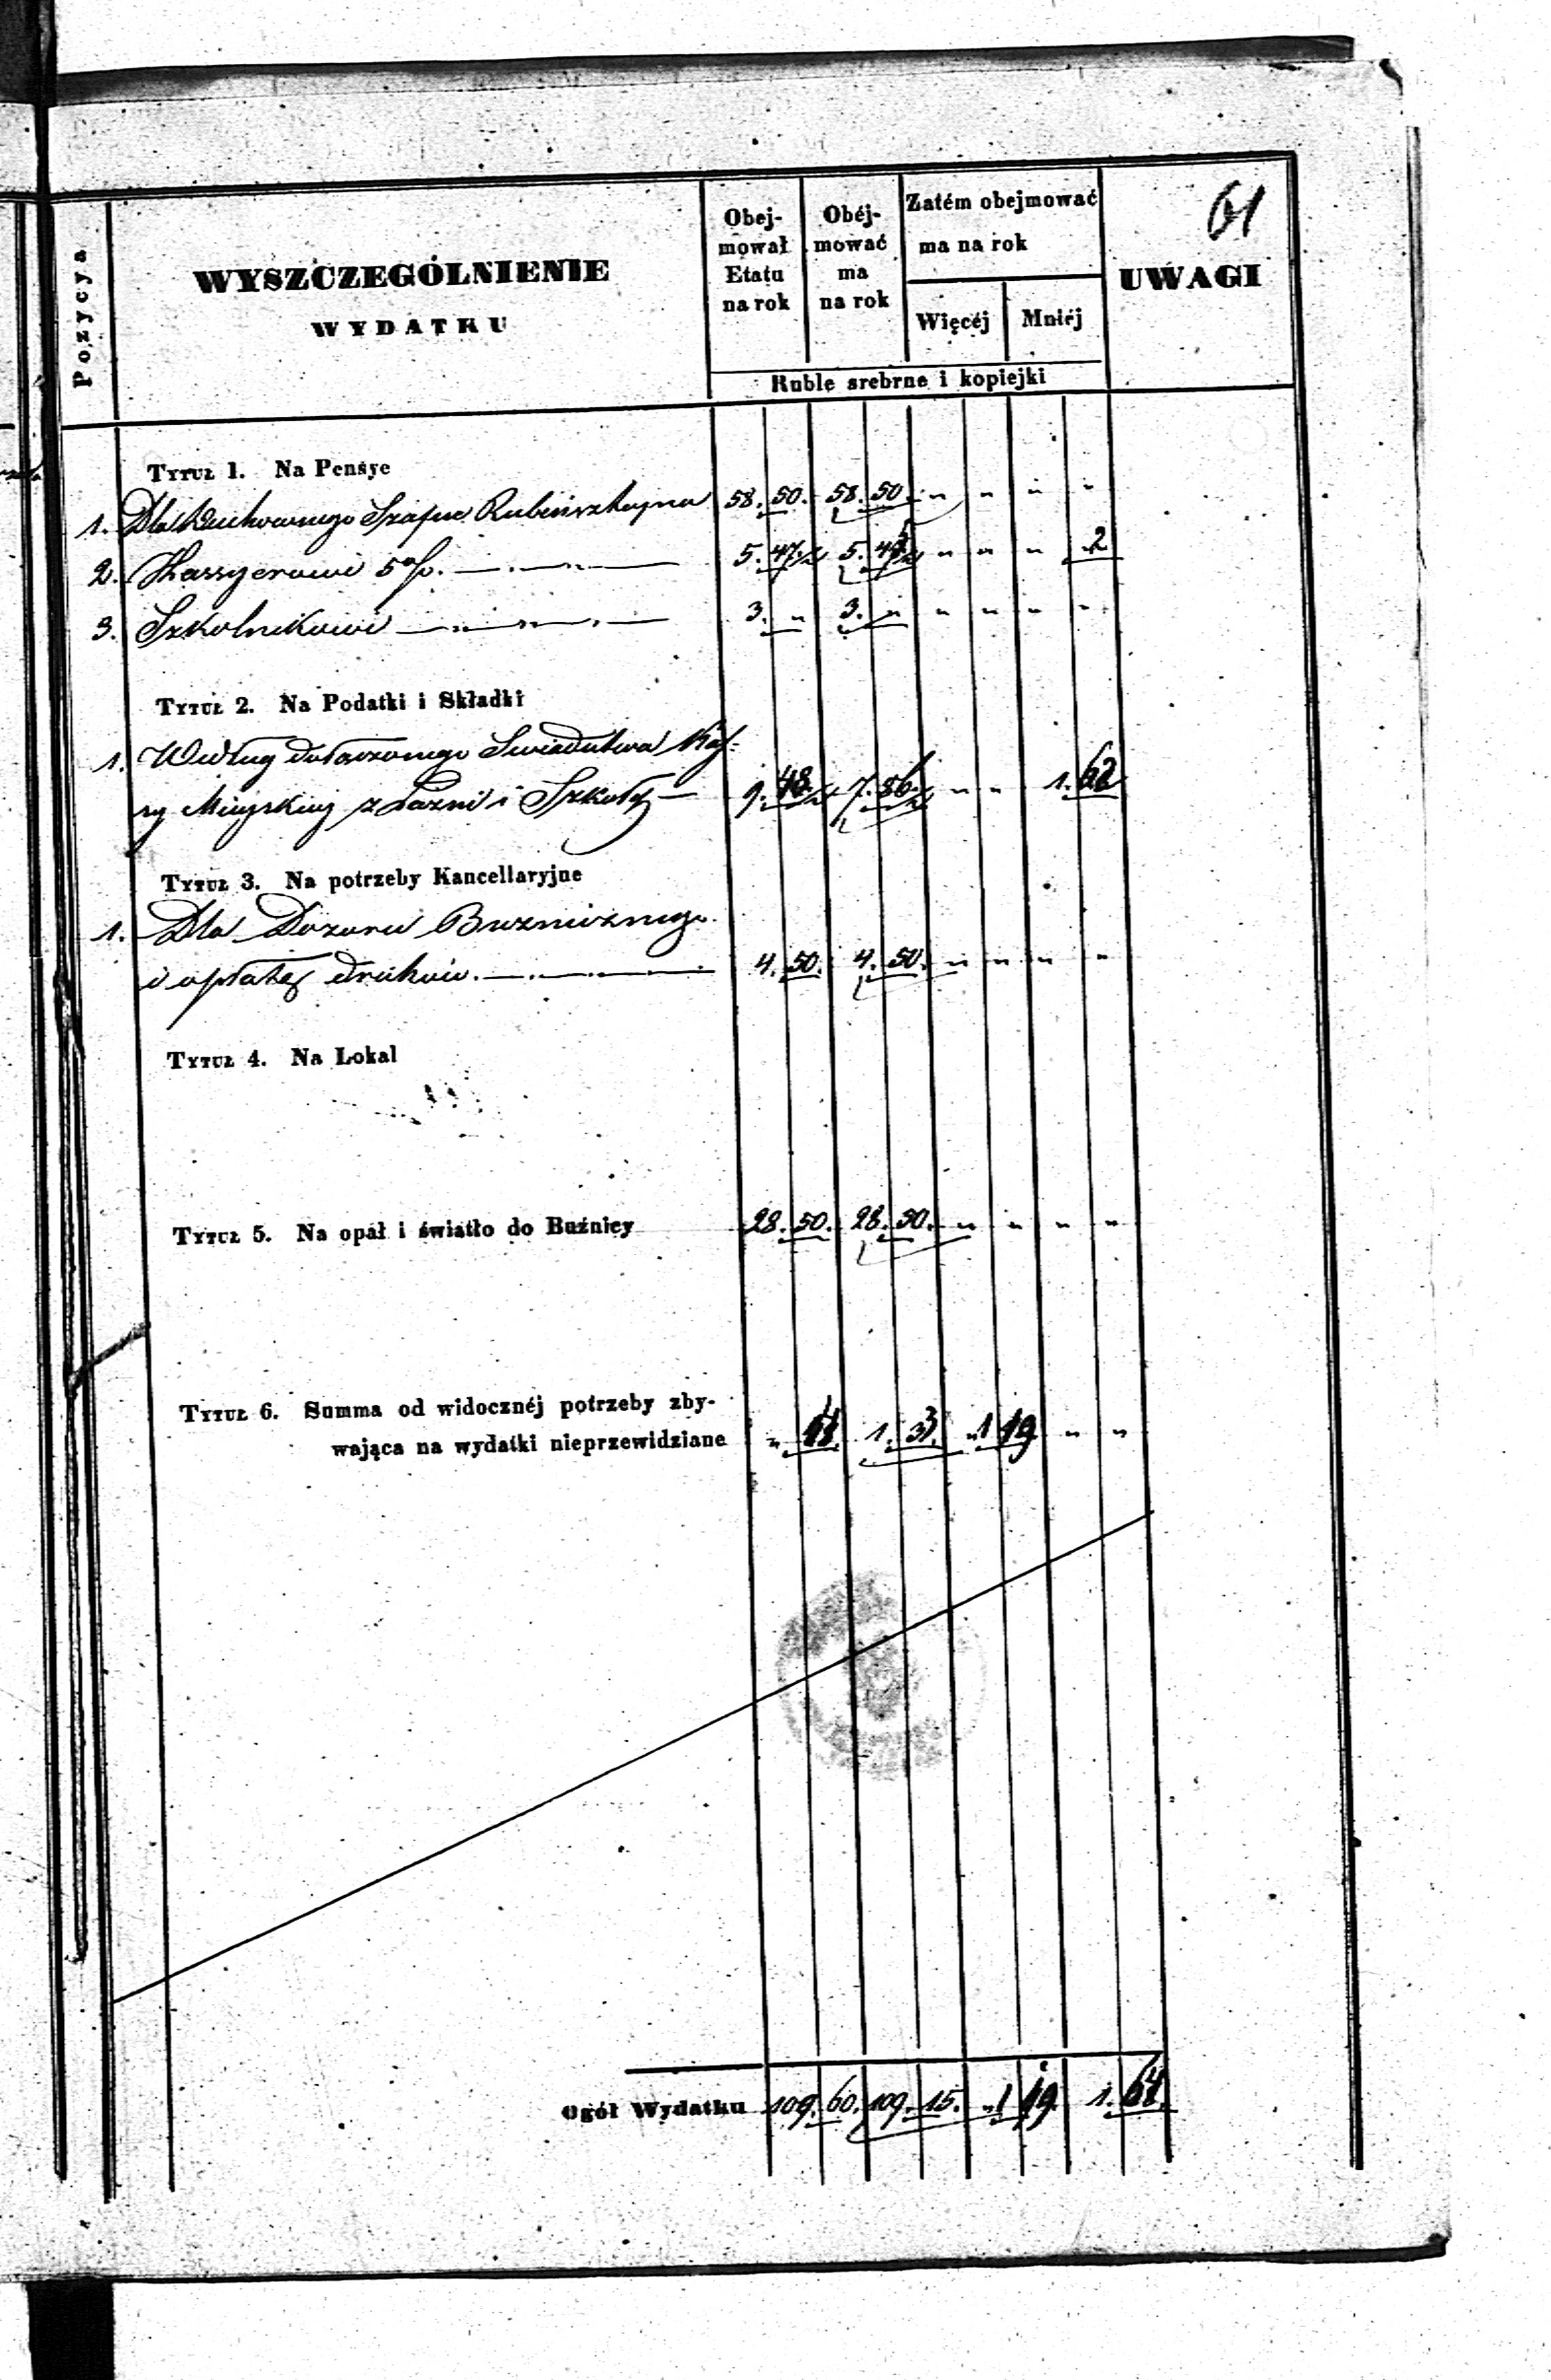 61
Pozycya
WYSZCZEGÓLNIENIE
WYDATKU
Obej-
mował
Etatu
na rok
Obéj-
mować
ma
na rok
Zatém obejmować
ma na rok
Więcéj
Mniéj
UWAGI
Ruble srebrne i kopiejki
TYTUŁ 1. Na Pensye
1. Dla Duchownego Szafne Rubinsztayna 58. 50. 58. 50. " " " "
2. Kassyerowi 5%. 5. 47½ 5. " " " 2
3. Szkolnikowi 3. " 3. " " " " "
TYTUŁ 2. Na Podatki i Składki
1. Według dołączonego Swiadectwa Kas=
sy Mieyskiey z Łazni i Szkoły 9. 48½ 7. 86½ " " 1. 62
TYTUŁ 3. Na potrzeby Kancellaryjne
1. Dla Dozoru Buznicznego
i opłatę druków. 4. 50. 4. 50. " " " "
TYTUŁ 4. Na Lokal
TYTUŁ 5. Na opał i światło do Buźnicy 28. 50. 28. 50. " " " "
TYTUŁ 6. Summa od widocznéj potrzeby zby-
wająca na wydatki nieprzewidziane " 1. 31. 1 19 " "
Ogół Wydatku 109. 60. 109. 15. 1 19. 1. 64.